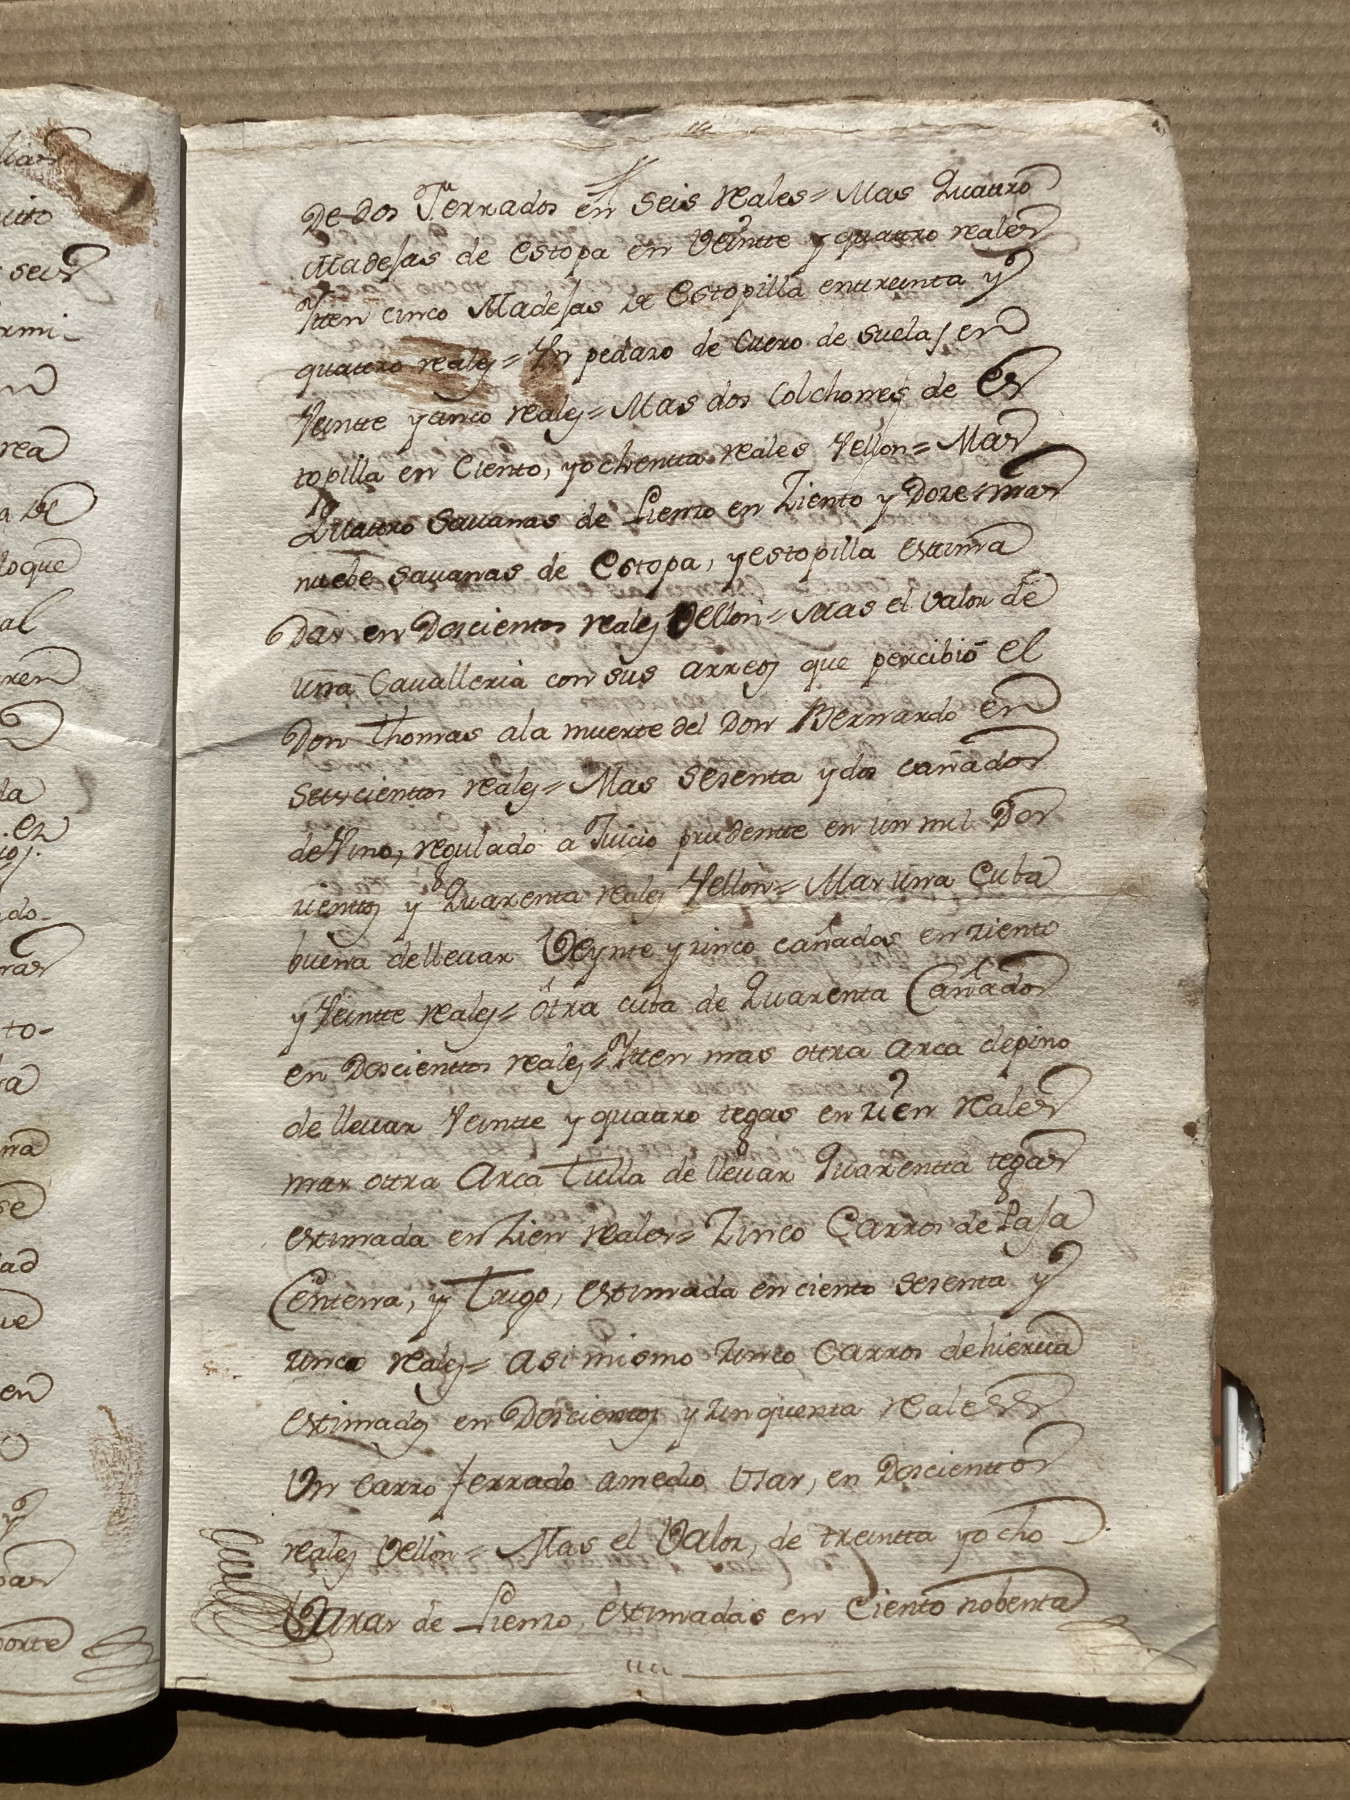 De dos Ferrados en seis reales = Mas Quatro
Madejas de estopa en Veintte y quatro reales
Itten cinco Madejas de Estopilla en treinta y
quatro reales = Un pedazo de Cuero de suelas en
Veintte y cinco reales = Mas dos Colchones de Es
topilla en Ciento, y ochentta reales Vellon = Mas
Quatro Savanas de Lienzo en Ziento y Doze = mas
nuebe savanas de Estopa, y estopilla estima
das en Doscientos reales Vellon = Mas el valor de
una Cavalleria con sus arreos que percibió el
Don Thomas ala muerte del Don Bernardo en
Seiscientos reales = Mas sesenta y dos cañados
de Vino, regulado a Juicio prudentte en un mil Dos
cientos y Quarenta reales Vellon = Mas una Cuba
buena de llevar Veynte y cinco cañados en ziento
y Veintte reales = otra cuba de Quarenta Cañados
en Doscienttos reales = Itten mas ottra arca de pino
de llevar Veintte y quattro tegas en zien reales
mas ottra Arca Tulla de llevar Quarentta tegas
estimada en Zien reales = Zinco Carros de Paja
Centena, y Trigo, estimada en ciento sesenta y
zinco reales = asi mismo zinco Carros de hierva
estimados en Doscientos y zinquenta reales
Un carro ferrado a medio Usar, en Doscienttos
reales Vellon = Mas el Valor, de treintta y ocho
Varas de Lienzo, estimadas en Ciento nobenta